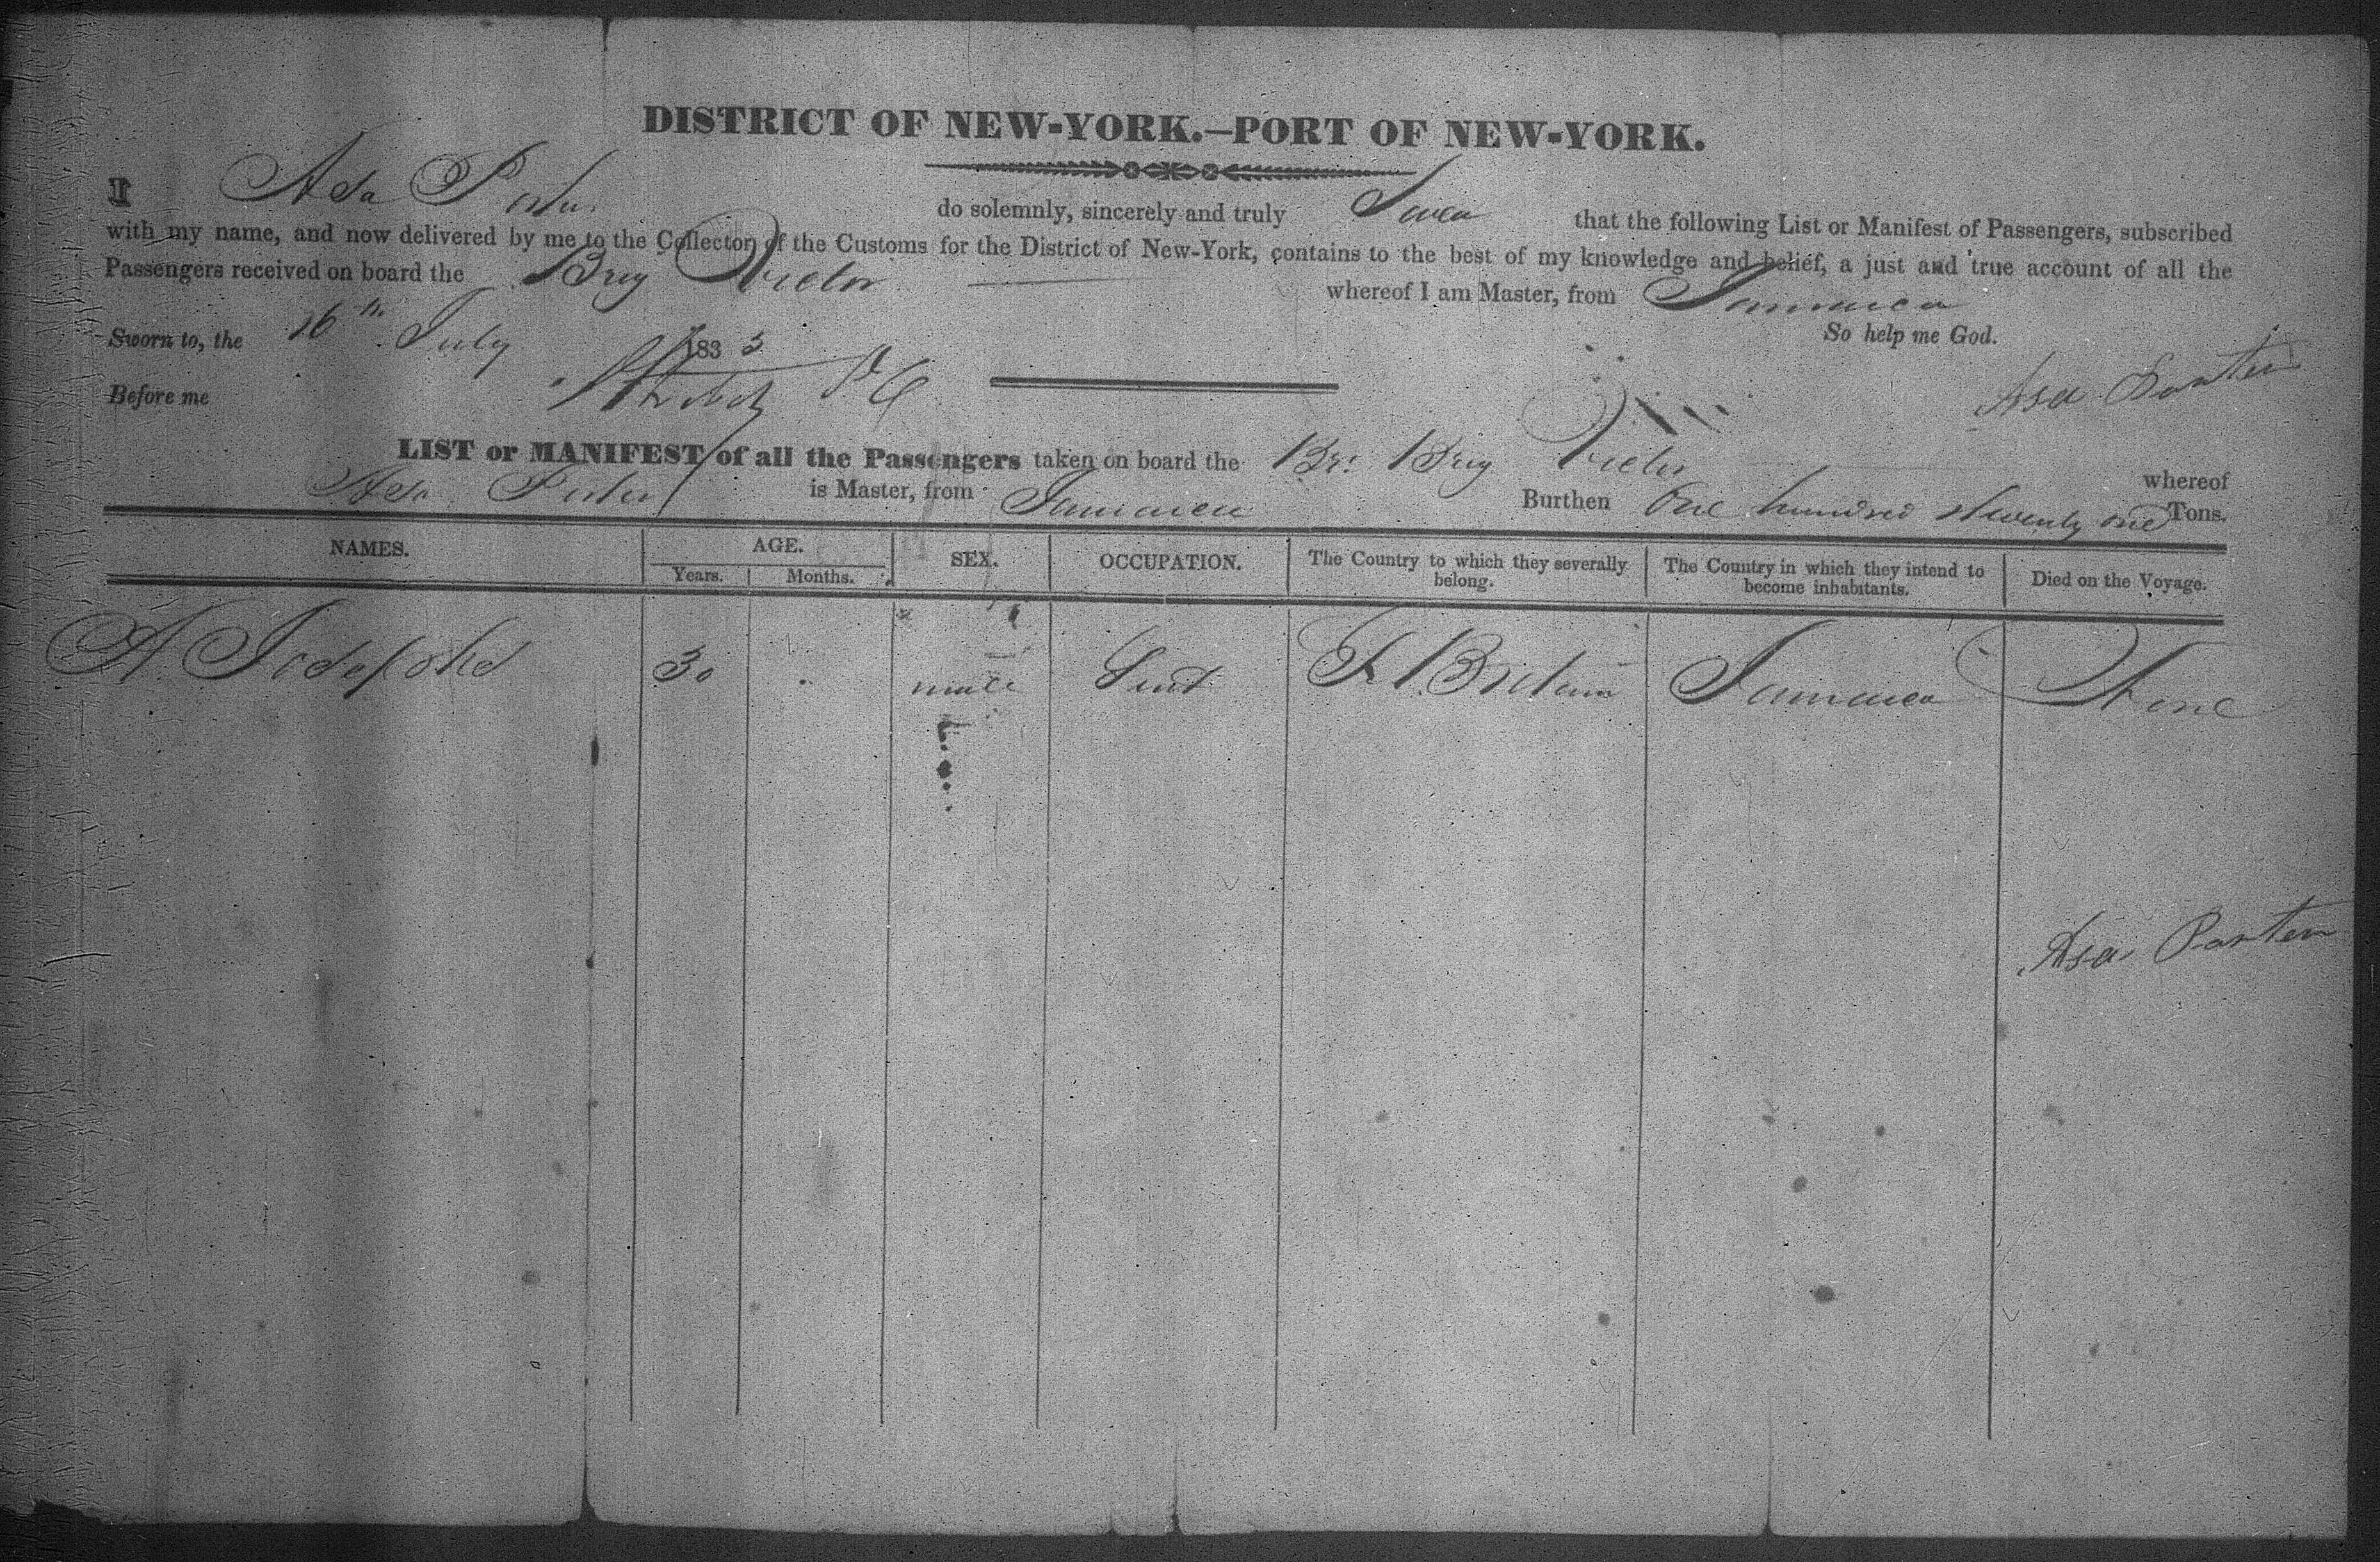 DISTRICT OF NEW-YORK.—PORT OF NEW-YORK.
I Asa Porter do solemnly, sincerely and truly Swear that the following List or Manifest of Passengers, subscribed
with my name, and now delivered by me to the Collector of the Customs for the District of New-York, contains to the best of my knowledge and belief, a just and true account of all the
Passengers received on board the Brig Victor whereof I am Master, from Jamaica
So help me God.
Sworn to, the 16th July 1833
Asa Porter
Before me
LIST or MANIFEST of all the Passengers taken on board the Br. Brig Victor whereof
Asa Porter is Master, from Jamaica Burthen One hundred & twenty one Tons.
NAMES. AGE. SEX. OCCUPATION. The Country to which they severally belong. The Country in which they intend to become inhabitants. Died on the Voyage.
Years. Months.
A. Josephs 30 male Gent Gt Britain Jamaica None
Asa Porter